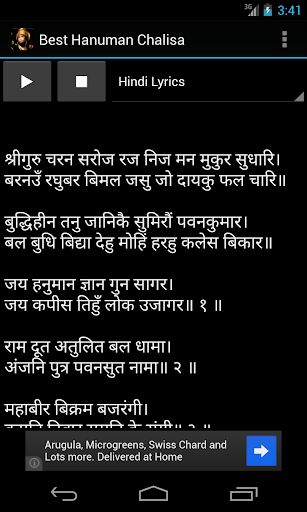 3:41
Best Hanuman Chalisa
Hindi Lyrics
श्रीगुरु चरन सरोज रज निज मन मुकुर सुधारि।
बरनउँ रघुबर बिमल जसु जो दायकु फल चारि॥
बुद्धिहीन तनु जानिकै सुमिरौं पवनकुमार।
बल बुधि बिद्या देहु मोहिं हरहु कलेस बिकार॥
जय हनुमान ज्ञान गुन सागर।
जय कपीस तिहुँ लोक उजागर॥ १ ॥
राम दूत अतुलित बल धामा।
अंजनि पुत्र पवनसुत नामा॥ २ ॥
महाबीर बिक्रम बजरंगी।
Arugula, Microgreens, Swiss Chard and
Lots more. Delivered at Home